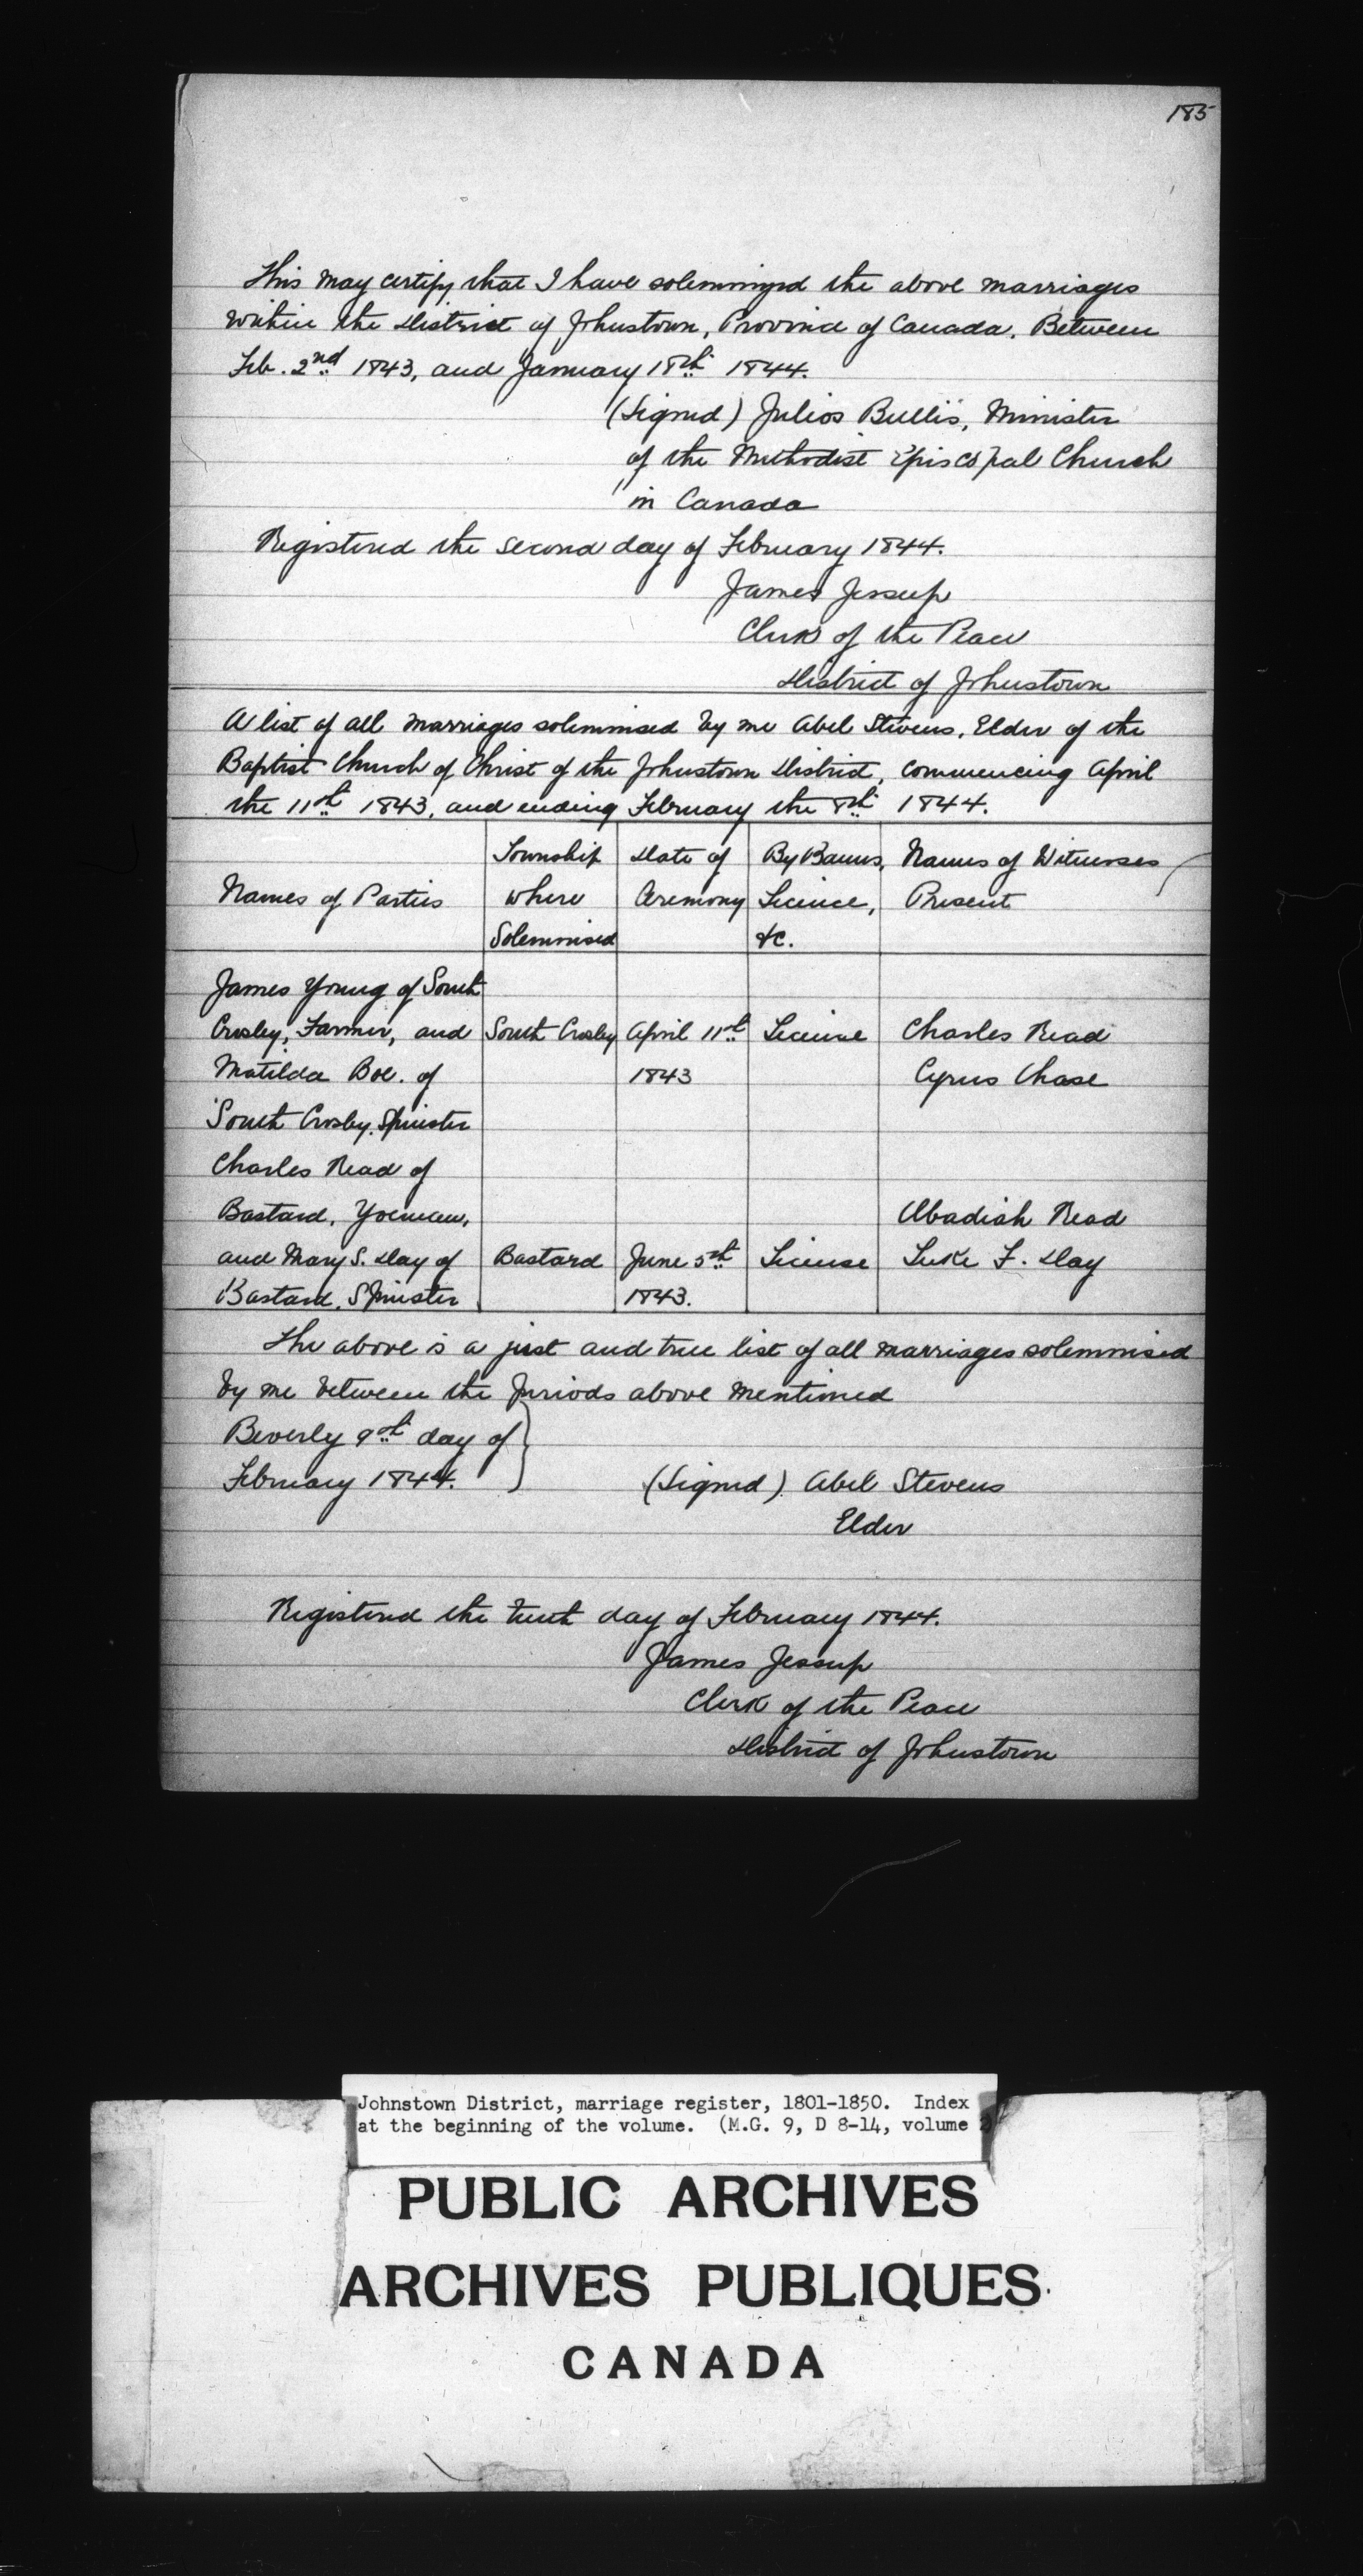 185
This may certify that I have solemnized the above marriages
within the District of Johnstown, Province of Canada. Between
Feb. 2nd 1843, and January 18th 1844.
(Signed) Julios Bullis, Minister
of the Methodist Episcopal Church
in Canada
Registered the second day of February 1844.
James Jessup
Clerk of the Peace
District of Johnstown
A list of all marriages solemnised by me Abel Stevens, Elder of the
Baptist Church of Christ of the Johnstown District, commencing April
the 11th 1843, and ending February the 8th 1844.
Names of Parties
Township where Solemnised
Date of Ceremony
By Banns, Licence, &c.
Names of Witnesses Present
James Young of South
Crosby, Farmer, and South Crosby April 11th License Charles Read
Matilda Boe. of 1843 Cyrus Chase
South Crosby, Spinster
Charles Read of
Bastard, Yoeman, Abadiah Read
and Mary S. Day of Bastard June 5th License Luke F. Day
Bastard, Spinster 1843.
The above is a just and true list of all marriages solemnised
by me between the periods above mentioned
Beverly 9th day of
February 1844. (Signed) Abel Stevens
Elder
Registered the tenth day of February 1844.
James Jessup
Clerk of the Peace
District of Johnstown
Johnstown District, marriage register, 1801-1850. Index
at the beginning of the volume. (M.G. 9, D 8-14, volume
PUBLIC ARCHIVES
ARCHIVES PUBLIQUES
CANADA